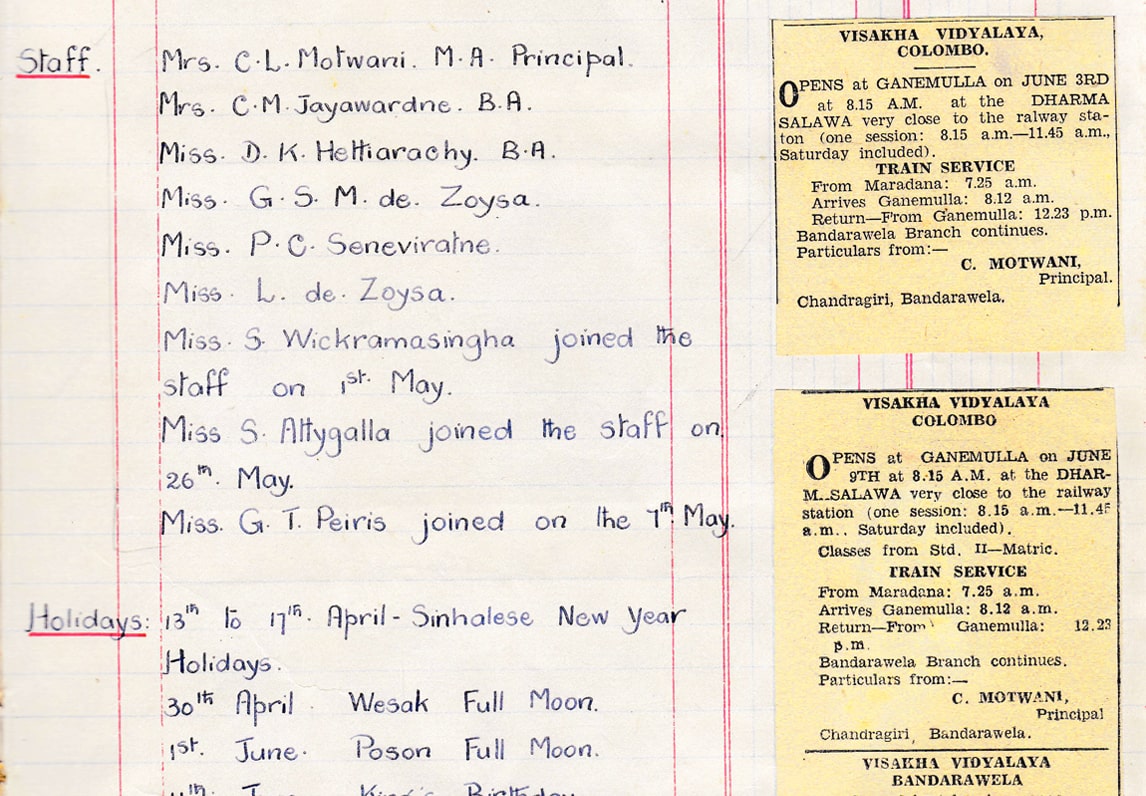 Staff. Mrs. C. L. Motwani. M.A. Principal.
Mrs. C.M. Jayawardne. B.A.
Miss. D. K. Hettiarachy. B.A.
Miss. G. S. M. de. Zoysa.
Miss. P. C. Seneviratne.
Miss. L. de. Zoysa.
Miss. S. Wickramasingha joined the
staff on 1st. May.
Miss S. Attygalla joined the staff on
26th. May.
Miss. G. T. Peiris joined on the 7th May.
Holidays: 13th to 17th. April - Sinhalese New Year
Holidays.
30th April. Wesak Full Moon.
1st. June. Poson Full Moon.
4th. June King's Birthday
VISAKHA VIDYALAYA,
COLOMBO.
OPENS at GANEMULLA on JUNE 3RD
at 8.15 A.M. at the DHARMA
SALAWA very close to the ralway sta-
ton (one session: 8.15 a.m.—11.45 a.m.,
Saturday included).
TRAIN SERVICE
From Maradana: 7.25 a.m.
Arrives Ganemulla: 8.12 a.m.
Return—From Ganemulla: 12.23 p.m.
Bandarawela Branch continues.
Particulars from:—
C. MOTWANI,
Principal.
Chandragiri, Bandarawela.
VISAKHA VIDYALAYA
COLOMBO
OPENS at GANEMULLA on JUNE
9TH at 8.15 A.M. at the DHAR-
M..SALAWA very close to the railway
station (one session: 8.15 a.m.—11.45
a.m., Saturday included).
Classes from Std. II—Matric.
TRAIN SERVICE
From Maradana: 7.25 a.m.
Arrives Ganemulla: 8.12 a.m.
Return—From Ganemulla: 12.23
p.m.
Bandarawela Branch continues.
Particulars from:—
C. MOTWANI,
Principal
Chandragiri, Bandarawela.
VISAKHA VIDYALAYA
BANDARAWELA